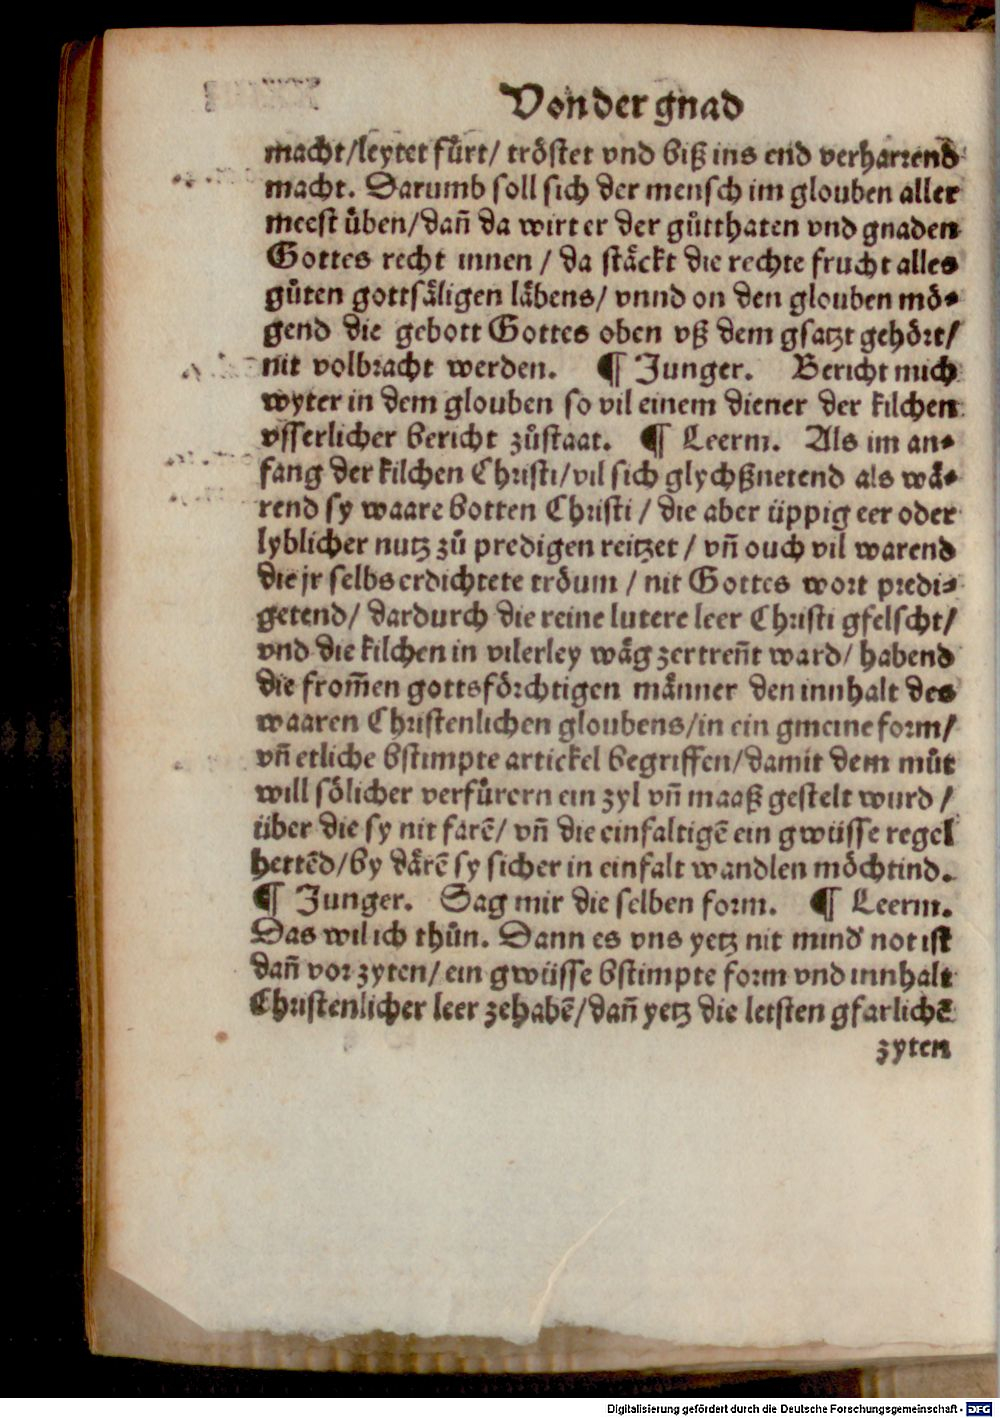 Von der gnad
macht/leytet fuͤrt/ troͤstet vnd biß ins end verharrend
macht. Darumb soll sich der mensch im glouben aller
meest uͤben/dañ da wirt er der guͤtthaten vnd gnaden
Gottes recht innen / da staͤckt die rechte frucht alles
guͤten gottsaͤligen laͤbens/ vnnd on den glouben moͤ⸗
gend die gebott Gottes oben vß dem gsatzt gehoͤrt/
nit volbracht werden. ¶ Junger. Bericht mich
wyter in dem glouben so vil einem diener der kilchen
vsserlicher bericht zuͤstaat. ¶ Leerm. Als im an⸗
fang der kilchen Christi/vil sich glychßnetend als waͤ⸗
rend sy waare botten Christi / die aber üppig eer oder
lyblicher nutz zuͤ predigen reitzet / vñ ouch vil warend
die jr selbs erdichtete troͤum / nit Gottes wort predi⸗
getend/ dardurch die reine lutere leer Christi gfelscht/
vnd die kilchen in vilerley waͤg zertreñt ward/ habend
die from̃en gottsfoͤrchtigen maͤnner den innhalt des
waaren Christenlichen gloubens/in ein gmeine form/
vñ etliche bstimpte artickel begriffen/damit dem muͤt
will soͤlicher verfuͤrern ein zyl vñ maaß gestelt wurd /
über die sy nit farē/ vñ die einfaltigē ein gwüsse regel
hettēd/by daͤrē sy sicher in einfalt wandlen moͤchtind.
¶ Junger. Sag mir die selben form. ¶ Leerm.
Das wil ich thuͤn. Dann es vns yetz nit mind' not ist
dañ vor zyten/ ein gwüsse bstimpte form vnd innhalt
Christenlicher leer zehabē/dañ yetz die letsten gfarlichē
zyten
Digitalisierung gefördert durch die Deutsche Forschungsgemeinschaft - DFG